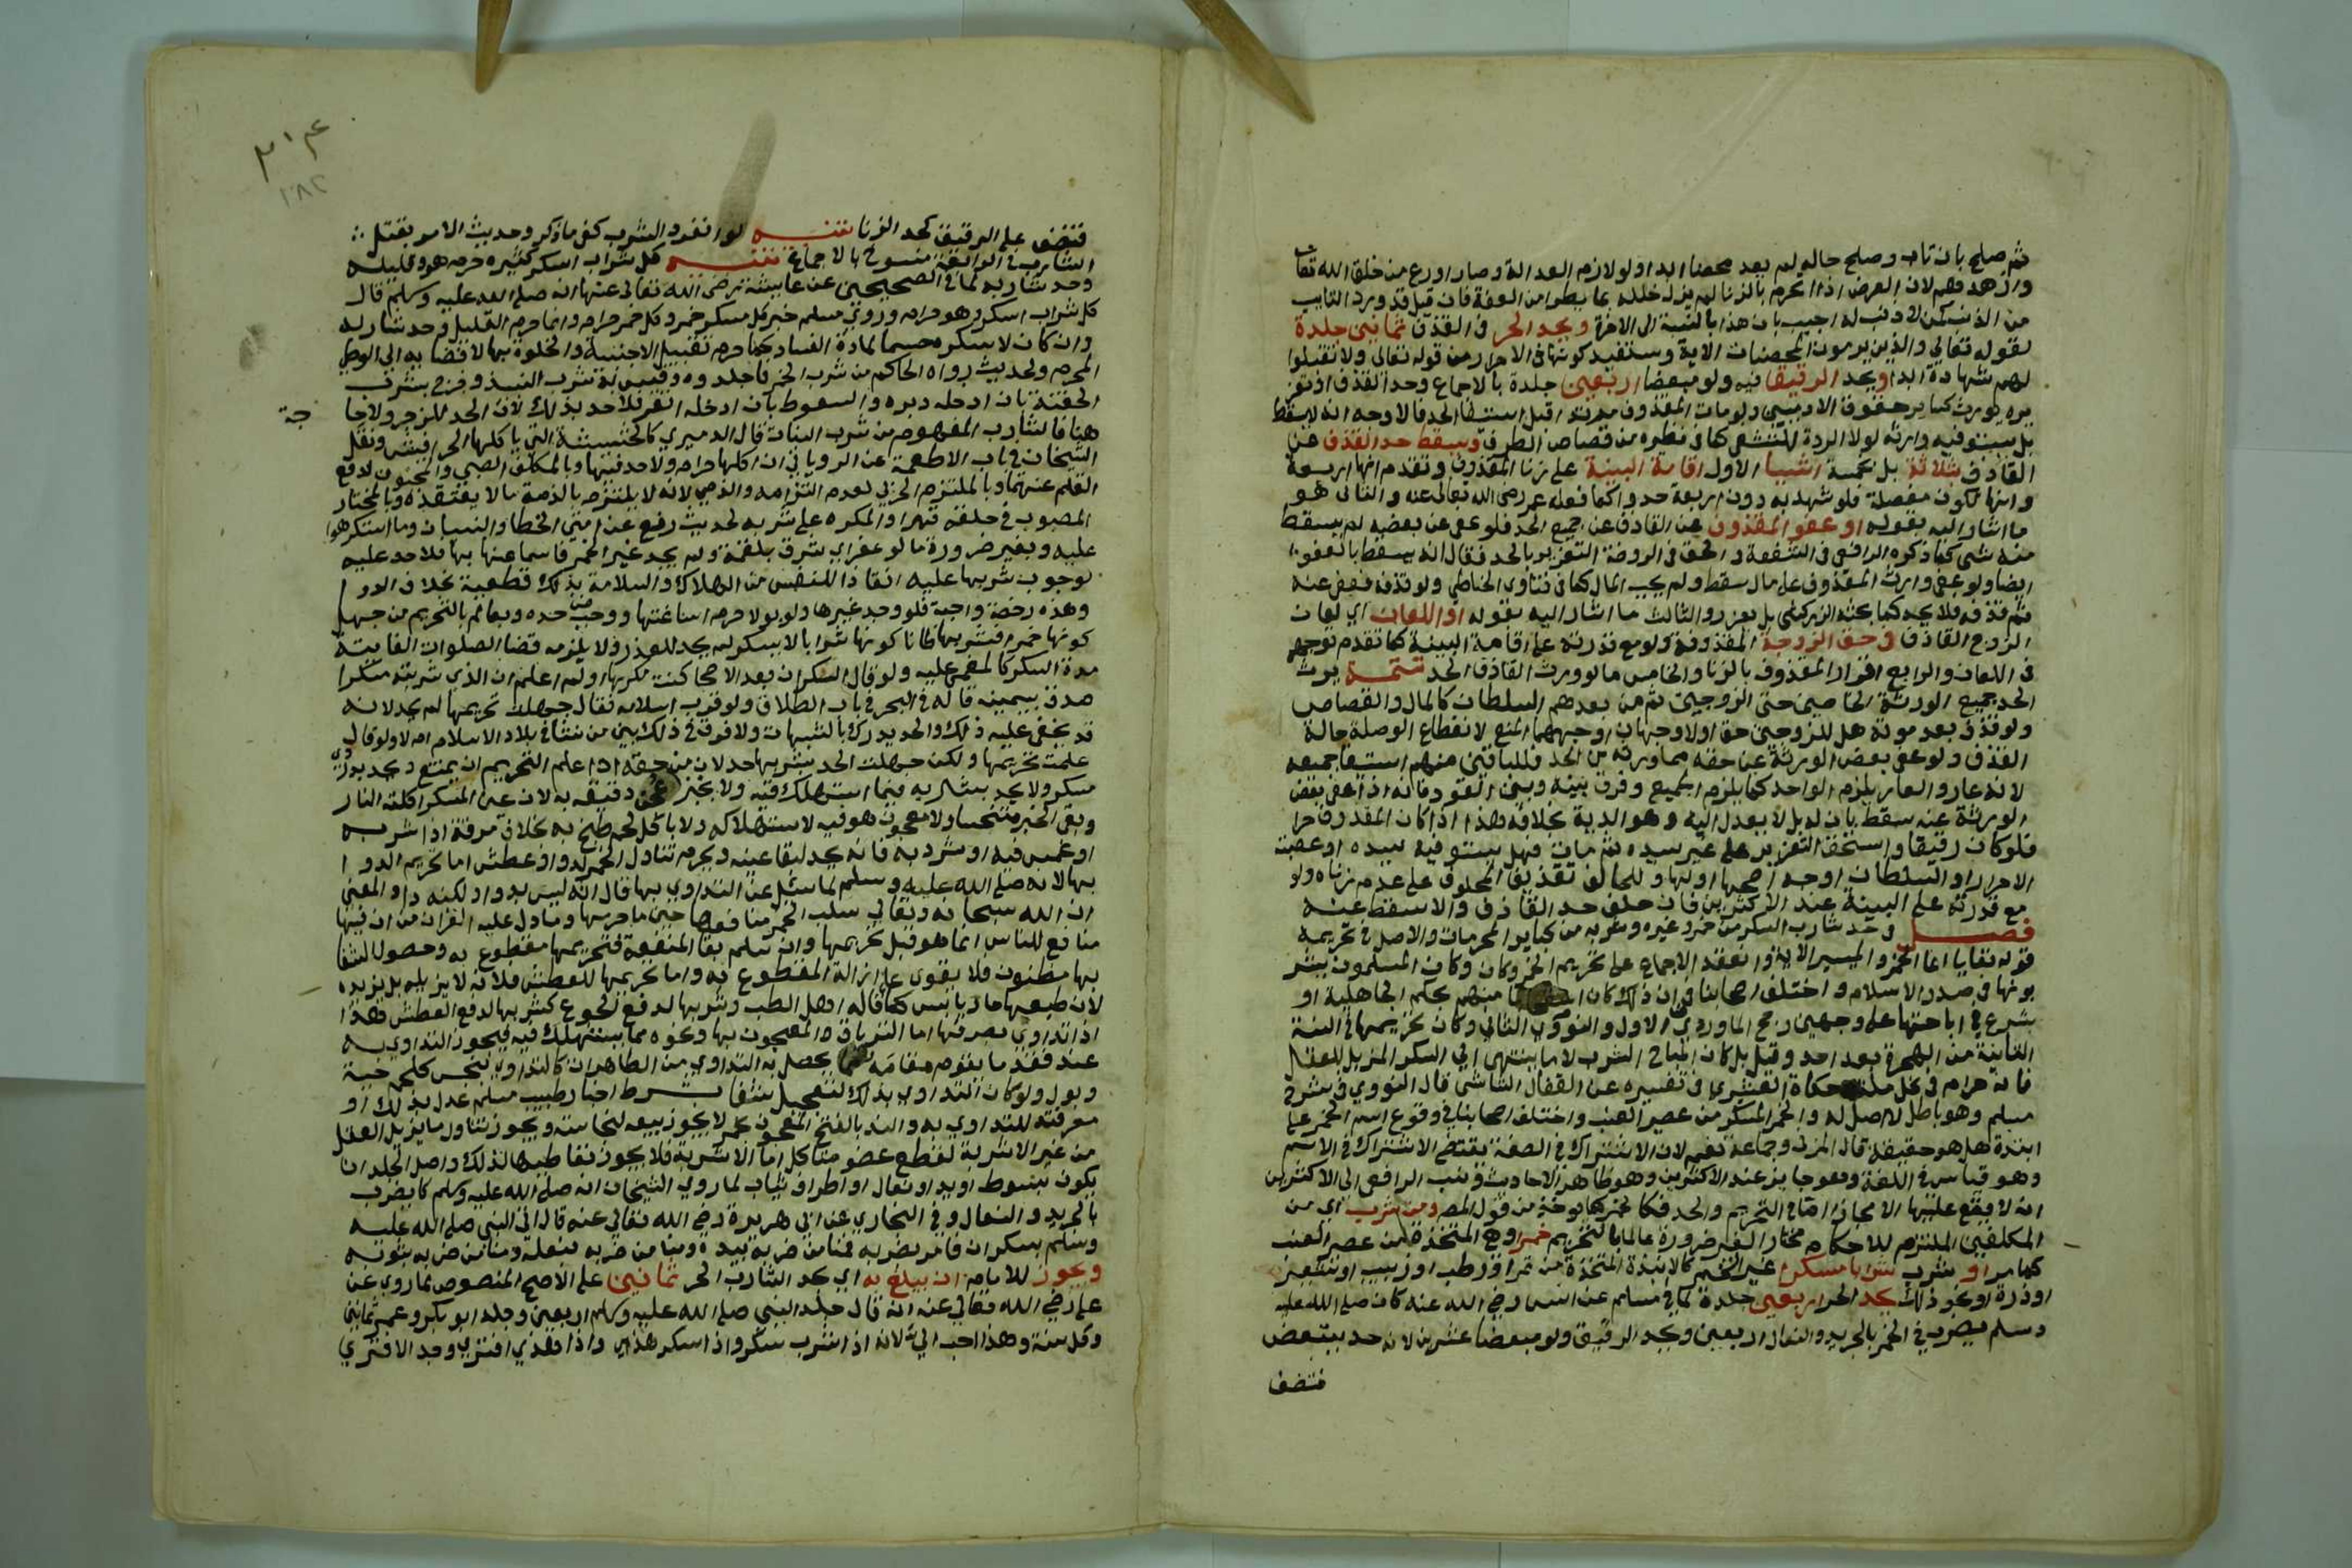 ثم صلح بان تاب وصلح حاله لم يعد محصنا ابدا ولو لازم العدالة وصار اورع من خلق الله تعالى
وازهدهم لان العرض اذا انخرم بالزنا لم يزل خلله بما يطرا من العفة فان قيل قد ورد التايب
من الذنب كمن لا ذنب له اجيب بان هذا بالنسبة الى الاخرة ويحد الحر في القذف ثمانين جلدة
لقوله تعالي والذين يرمون المحصنات الاية وستفيد كونها في الاحرار من قوله تعالى ولا تقبلوا
لهم شهادة ابدا ويحد الرقيق فيه ولو مبعضا اربعين جلدة بالاجماع وحد القذف اذ تعز
يره يورث كساير حقوق الادميين ولو مات المقذوف مرتدا قبل استيفا الحد فالاوجه انه لا يسقط
بل يستوفيه وارثه لولا الردة للتشفى كما في نظيره من قصاص الطرف ويسقط حد القذف عن
القاذف بثلاثة بل بخمسة اشيا الاول اقامة البينة على زنا المقذوف وتقدم انها اربعة
وانها تكون مفصلة فلو شهد به دون اربعة حدوا كما فعله عمر رضى الله تعالى عنه والثانى هو
ما اشار اليه بقوله او عفو المقذوف عن القاذف عن جميع الحد فلو عفى عن بعضه لم يسقط
منه شي كما ذكره الرافعى في الشفعة والحق في الروضة التعزير بالحد فقال انه يسقط بالعفو
ايضا ولو عفى وارث المقذوف على مال سقط ولم يجب المال كما في فتاوى الحناطي ولو قذفه فعفى عنه
ثم قذفه فلا يحد كما بحثه الزركشى بل يعزر والثالث ما اشار اليه بقوله او اللعان اي لعان
الزوج القاذف في حق الزوجة المقذوفة ولو مع قدرته على اقامة البينة كما تقدم توجيهه
في اللعان والرابع اقرار المقذوف بالزنا والخامس ما لو ورث القاذف الحد تتمة يرث
الحد جميع الورثة الخاصين حتى الزوجين ثم من بعدهم السلطان كالمال والقصاص
ولو قذف بعد موته هل للزوجين حق او لا وجهان اوجههما المنع لانقطاع الوصلة حالة
القذف ولو عفى بعض الورثة عن حقه مما ورثه من الحد فللباقين منهم استيفا جميعه
لانه عار والعار يلزم الواحد كما يلزم الجميع وفرق بينه وبين القود فانه اذا عفى بعض
الورثة عنه سقط بان له بدلا يعدل اليه وهو الدية بخلافه هذا اذا كان المقذوف حرا
فلو كان رقيقا واستحق التعزير على غير سيده ثم مات فهل يستوفيه سيده او عصبته
الاحرار او السلطان اوجه اصحها اولها وللحالف تقذيف المحلوف على عدم زناه ولو
مع قدرته على البينة عند الاكثرين فان حلف حد القاذف والا سقط عنه
فصل في حد شارب السكر من خمر وغيره وشربه من كباير المحرمات والاصل في تحريمه
قوله تعالى انما الخمر والميسر الاية وانعقد الاجماع على تحريم الخمر وكان وكان المسلمون يشر
بونها في صدر الاسلام واختلف اصحابنا في ان ذلك كان منهم بحكم الجاهلية او
بشرع في اباحتها على وجهين رجح الماوردي الاول والنووي الثاني وكان تحريمها في السنة
الثانية من الهجرة بعد احد وقيل بل كان المباح الشرب لا ما ينتهى الى السكر المزيل للعقل
فانه حرام في كل ملة حكاه القشيري في تفسيره عن القفال الشاشى قال النووي في شرح
مسلم وهو باطل لا اصل له والخمر المسكر من عصير العنب واختلف اصحابنا في وقوع اسم الخمر على
انبذة هل هو حقيقة قال المزنى وجماعة نعم لان الاشتراك في الصفة يقتضي الاشتراك في الاسم
وهو قياس في اللغة وهو جايز عند الاكثرين وهو ظاهر الاحاديث ونسب الرافعى الى الاكثرين
انه لا يقع عليها الا مجازا اما في التحريم والحد فكالخمر كما يوخذ من قول المص ومن شرب اي من
المكلفين الملتزم للاحكام مختارا لغير ضرورة عالما بالتحريم خمرا وهي المتخذة من عصير العنب
كما مر او شرب شرابا مسكرا غير الخمر كالانبذة المتخذة من تمر او رطب او زبيب او شعير
او ذرة او نحو ذلك يحد الحر اربعين جلدة لما في مسلم عن انس رضي الله عنه كان صلى الله عليه
وسلم يضرب في الخمر بالجريد والنعال اربعين ويحد الرقيق ولو مبعضا عشرين لانه حد يتبعض
فتنصف
٢٨٢
فتنصف على الرقيق كحد الزنا تنبيه لو انفرد الشرب كفى ما ذكر وحديث الامر بقتل
الشارب في الرابعة منسوخ بالاجماع تنبيه كل شراب اسكر كثيره حرم هو وقليله
وحد شاربه لما في الصحيحين عن عايشة رضى الله تعالى عنها انه صلى الله عليه وسلم قال
كل شراب اسكر وهو حرام وروى مسلم خبر كل مسكر خمر وكل خمر حرام وانما حرم القليل وحد شاربه
وان كان لا يسكر حسما لمادة الفساد كما حرم تقبيل الاجنبية والخلوة بها لافضايه الى الوطي
المحرم ولحديث رواه الحاكم من شرب الخمر فاجلدوه وقيس به شرب النبيذ وخرج بشرب
الحقنة بان ادخله دبره والسعوط بان ادخله انفه فلا حد بذلك لان الحد للزجر ولا حا
جة
هنا فالشارب المفهوم من شرب النبات قال الدميري كالحشيشة التي ياكلها الحرافيش ونقل
الشيخان في باب الاطعمة عن الروياني ان اكلها حرام ولا حد فيها وبالمكلف الصبي والمجنون لرفع
القلم عنهما وبالملتزم الحربي لعدم التزامه والذمي لانه لا يلتزم بالذمة ما لا يعتقده وبالمختار
المصبوب في حلقه قهرا والمكره على شربه لحديث رفع عن امتي الخطا والنسيان وما استكرهوا
عليه وبغير ضرورة ما لو غص اي شرق بلقمة ولم يجد غير الخمر فاساغها بها فلا حد عليه
لوجوب شربها عليه انقاذا للنفس من الهلاك والسلامة بذلك قطعية بخلاف الدوا
وهذه رخصة واجبة فلو وجد غيرها ولو بولا حرم اساغتها ووجب حده وبعالم بالتحريم من جهل
كونها خمرا فشربها ظانا كونها شرابا لا يسكر لم يحد للعذر ولا يلزمه قضا الصلوات الفايتة
مدة السكر كالمغمى عليه ولو قال السكران بعد الاصحا كنت مكرها او لم اعلم ان الذي شربته مسكرا
صدق بيمينه قاله في البحر في باب الطلاق ولو قرب اسلامه فقال جهلت تحريمها لم يحد لانه
قد يخفى عليه ذلك والحد يدرك بالشبهات ولا فرق في ذلك بين من نشا في بلاد الاسلام ام لا ولو قال
علمت تحريمها ولكن جهلت الحد بشربها حد لان من حقه اذا علم التحريم ان يمتنع ويحد بدردي
مسكر ولا يحد بشاربه فيما استهلك فيه ولا بخبز عجن دقيقه به لان عين المسكر اكلته النار
وبقي الخبز متنجسا ولا معجون هو فيه لاستهلاكه ولا باكل لحم طبخ به بخلاف مرقه اذا شربه
او غمس فيه او ثرد به فانه يحد لبقا عينه ويحرم تناول الخمر لدوا وعطش اما تحريم الدوا
بها لانه صلى الله عليه وسلم لما سئل عن التداوي بها قال انه ليس بدوا ولكنه دا والمعنى
ان الله سبحانه وتعالى سلب الخمر منافعها حين ما حرمها وما دل عليه القران من ان فيها
منافع للناس انما هو قبل تحريمها وان سلم بقا المنفعة فتحريمها مقطوع به وحصول الشفا
بها مظنون فلا يقوى على ازالة المقطوع به واما تحريمها للعطش فلانه لا يزيله بل يزيده
لان طبعها حار يابس كما قاله اهل الطب وشربها لدفع الجوع كشربها لدفع العطش هذا
اذا تداوي بصرفها اما الترياق المعجون بها ونحوه مما يستهلك فيه فيجوز التداوي به
عند فقد ما يقوم مقامه مما يحصل به التداوي من الطاهرات كالتداوي بنجس كلحم حية
وبول ولو كان التداوي بذلك لتعجيل شفا بشرط اخبار طبيب مسلم عدل بذلك او
معرفته للتداوي به والند بالفتح المعجون بخمر لا يجوز بيعه لنجاسته ويجوز تناول ما يزيل العقل
من غير الاشربة لقطع عضو متاكل اما الاشربة فلا يجوز تعاطيها لذلك واصل الجلد ان
يكون بسوط او يد او نعال او اطراف ثياب لما روي الشيخان انه صلى الله عليه وسلم كان يضرب
بالجريد والنعال وفي البخاري عن ابي هريرة رضي الله تعالى عنه قال اتي النبي صلى الله عليه
وسلم بسكران فامر بضربه فمنا من ضربه بيده ومنا من ضربه بنعله ومنا من ضربه بثوبه
ويجوز للامام ان يبلغ به اي بحد الشارب الحر ثمانين على الاصح المنصوص لما روي عن
على رضي الله تعالى عنه انه قال جلد النبي صلى الله عليه وسلم اربعين وجلد ابو بكر وعمر ثمانين
وكل سنة وهذا احب الى لانه اذا شرب سكر واذا سكر هذى واذا هذى افترى وحد الافترى